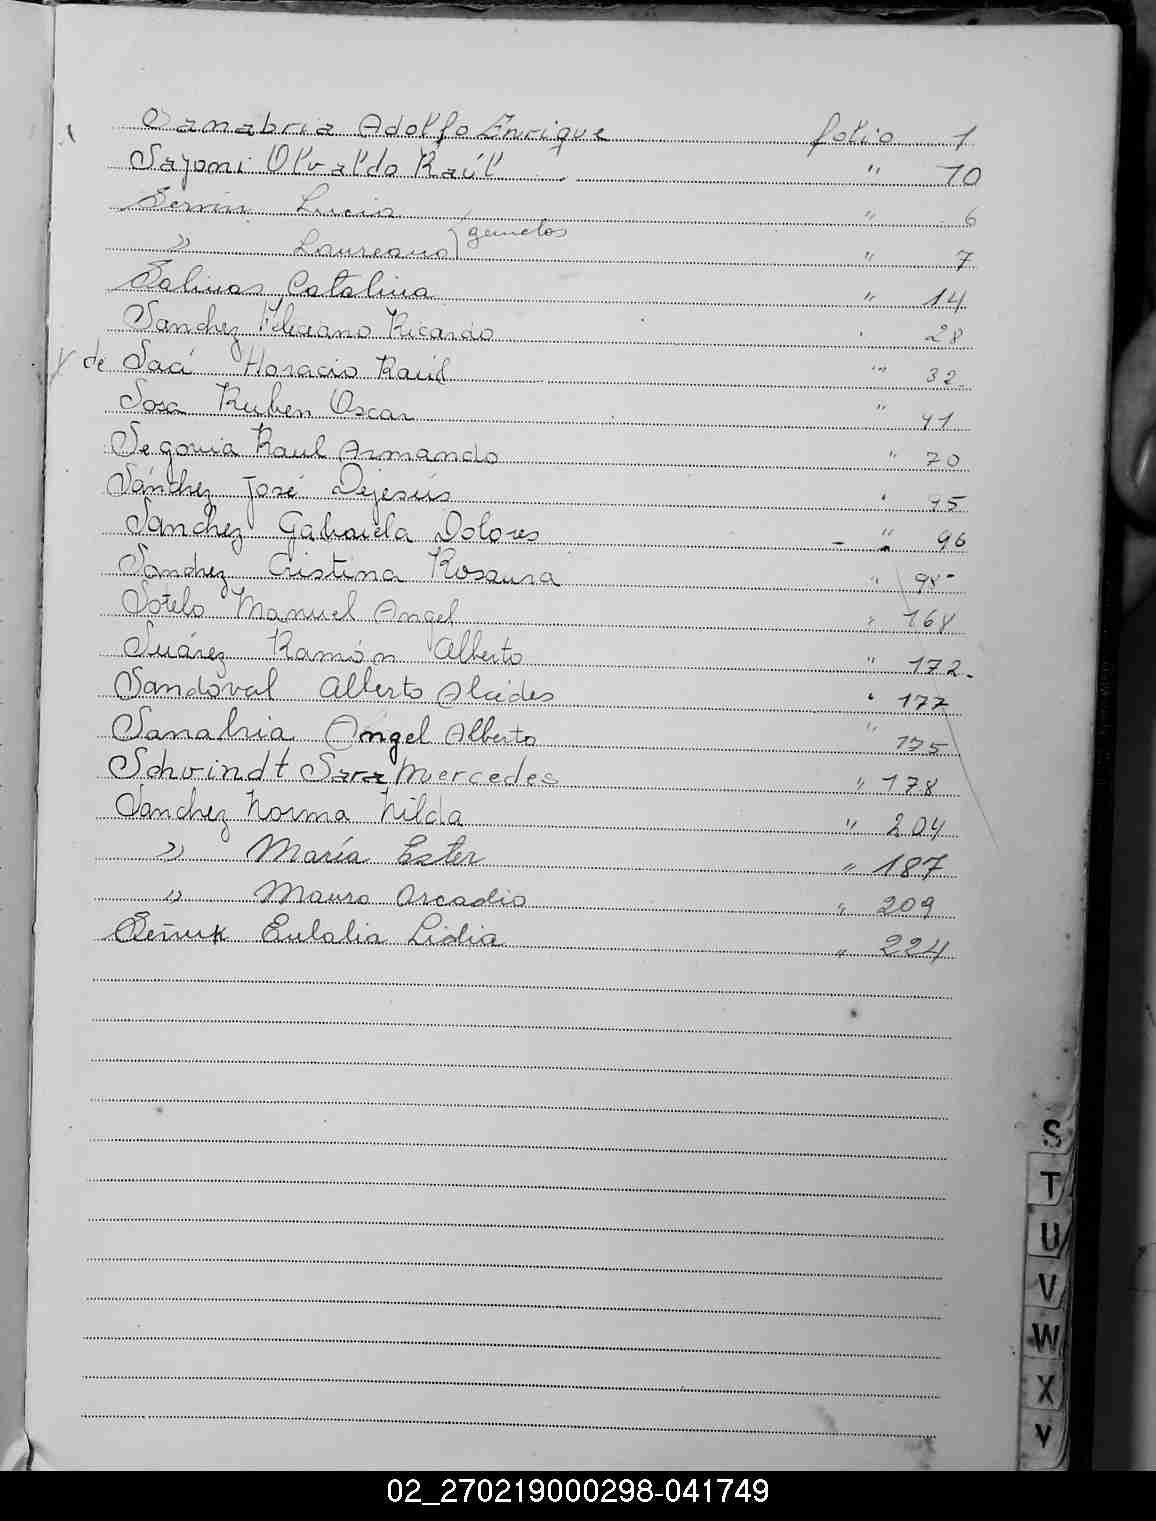 Sanabria Adolfo Enrique folio 1
Sayomi Olvaldo Raúl " 10
Servin Lucia " 6
" Laureano } gemelos " 7
Salinas Catalina " 14
Sanchez Feliciano Ricardo " 28
y de Saci Horacio Raúl " 32
Sosa Ruben Oscar " 41
Segovia Raul Armando " 70
Sánchez José Dejesús " 95
Sánchez Gabriela Dolores - " 96
Sánchez Cristina Rosaura "
Sotelo Manuel Angel " 168
Suárez Ramón Alberto " 172.
Sandoval Alberto Alcides " 177
Sanabria Angel Alberto " 175
Schvindt Sara Mercedes " 178
Sanchez Norma Nilda " 204
" María Ester " 187
" Mauro Arcadio " 209
Eulalia Lidia " 224
S
T
U
V
W
X
Y
02_270219000298-041749